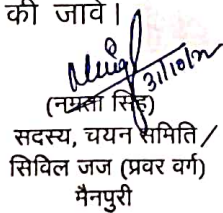 की जावे।
31/10/22
(नम्रता सिंह)
सदस्य, चयन समिति /
सिविल जज (प्रवर वर्ग)
मैनपुरी